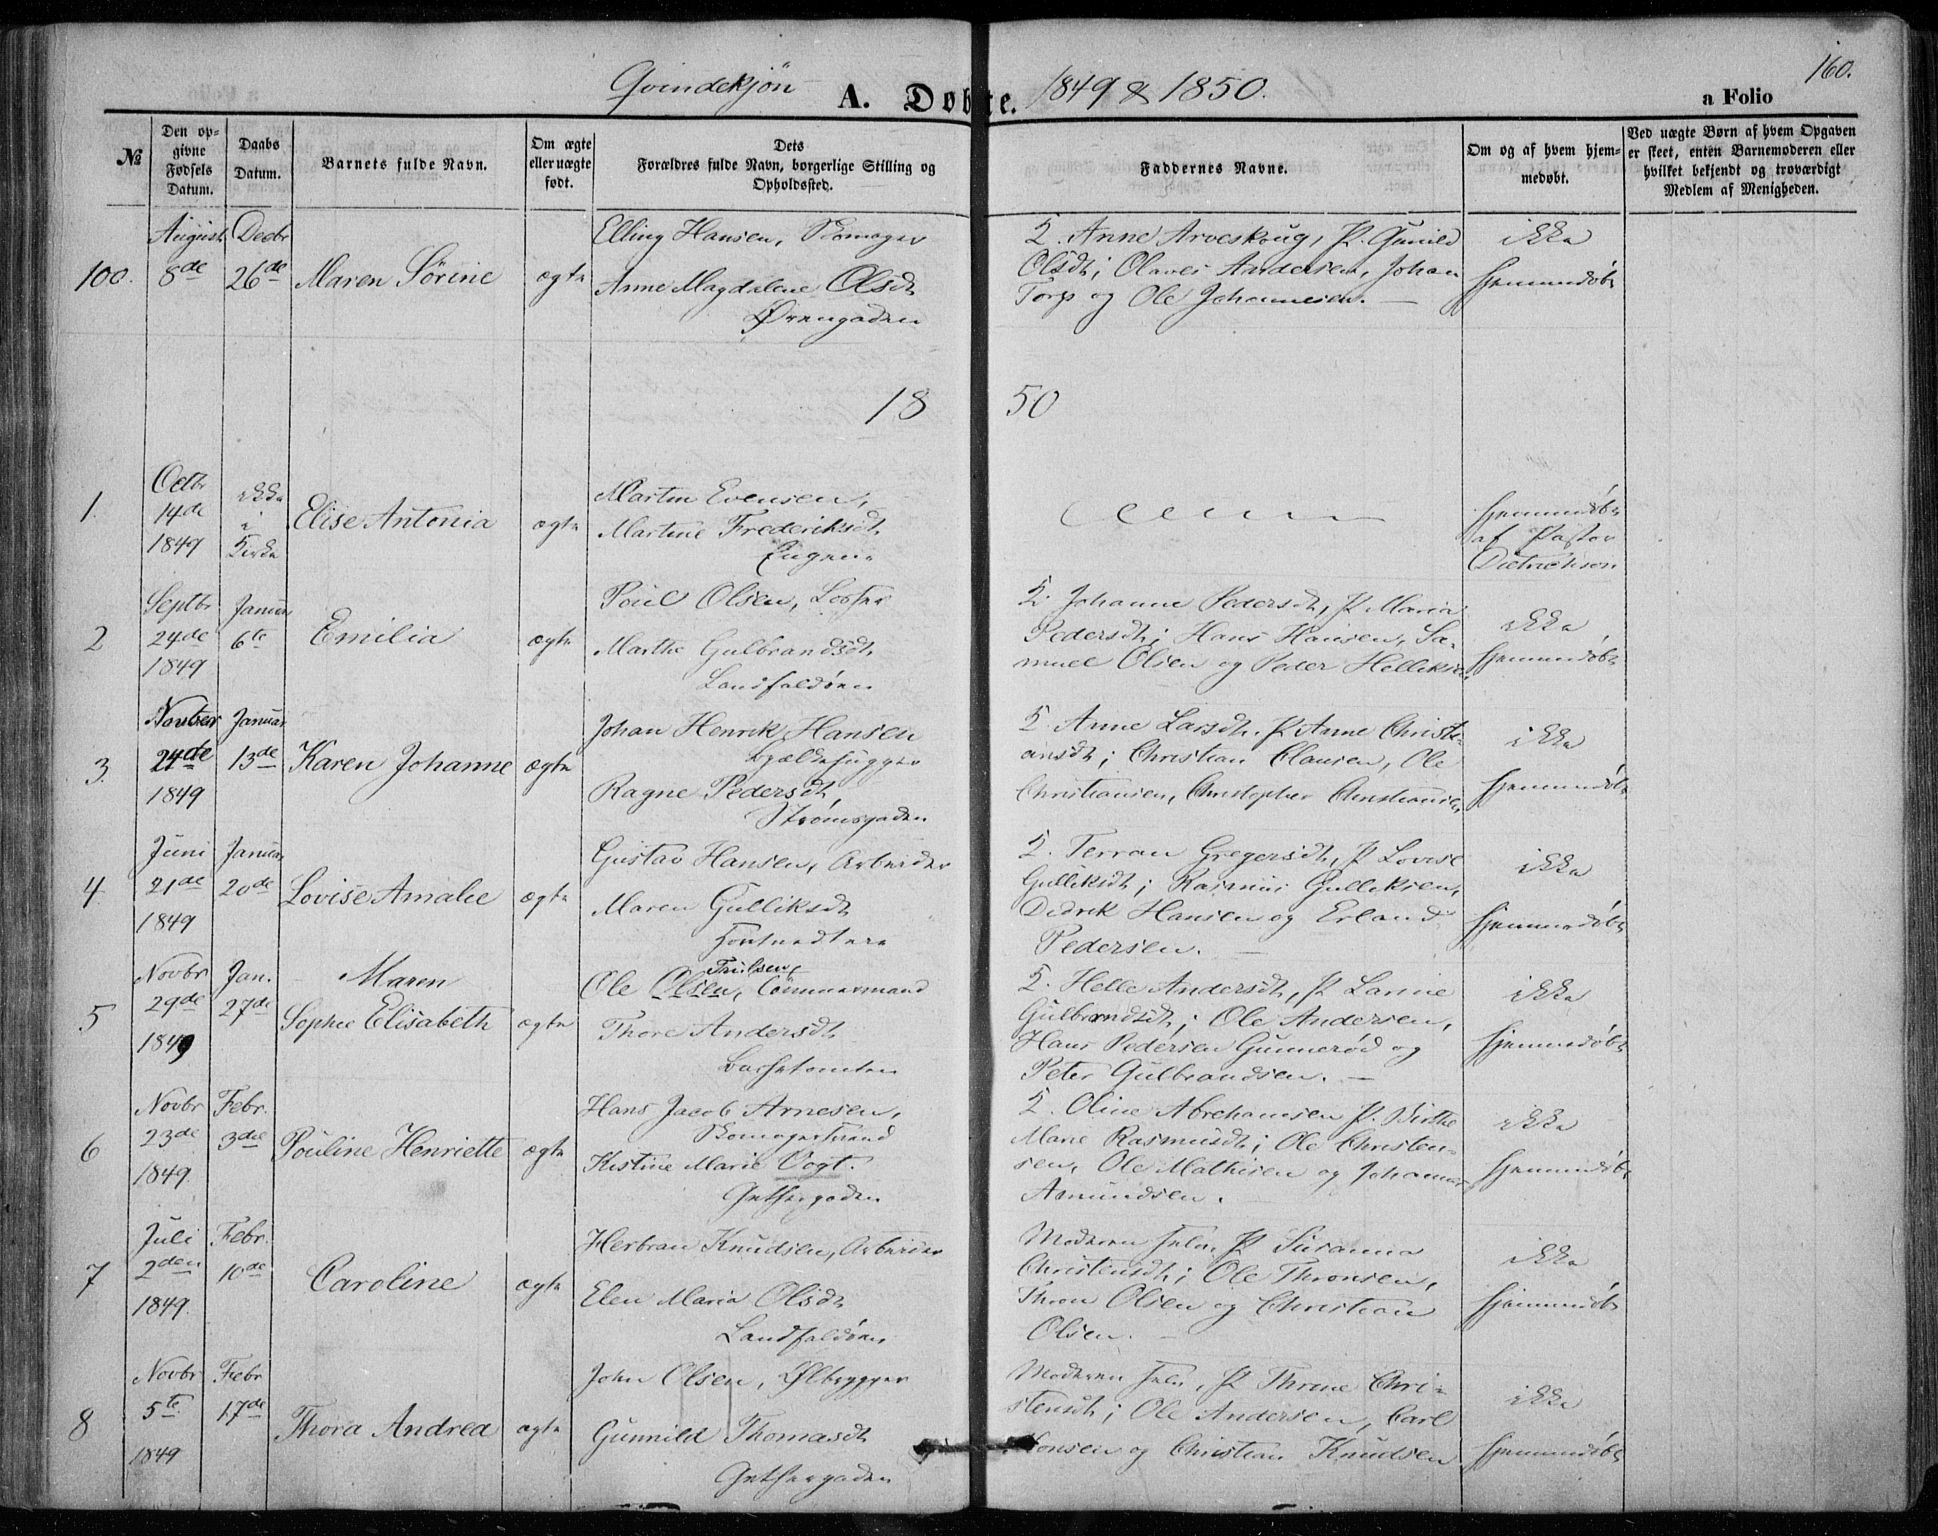 160.
Qvindekjön A. Døbte. 1849 & 1850. a Folio
№
Den op-
givne
Fødsels
Datum.
Daabs
Datum.
Barnets fulde Navn.
Om ægte
eller uægte
født.
Dets
Forældres fulde Navn, borgerlige Stilling og
Opholdssted.
Faddernes Navne.
Om og af hvem hjem-
medøbt.
Ved uægte Børn af hvem Opgaven
er skeet, enten Barnemoderen eller
hvilket bekjendt og troværdigt
Medlem af Menigheden.
100.
August
8de
Decbr
26de
Maren Sörine
ægte
Elling Hansen, Skomager
Anne Magdalene Olsdt
Ørengaden
Anne Arveskoug, P. Gunild
Olsdt; Olaves Andersen, Johan
Torp og Ole Johannesen.
ikke
hjemmedøbt
18 50
1.
Octbr
14de
1849
ikke
i
Kirke
Elise Antonia
ægte
Martin Evensen,
Martine Frederiksdt
Engene
hjemmedøbt
af Pastor
Dietrichson
2
Septbr
24de
1849
Januar
6te
Emilia
ægte
Poul Olsen,
Marthe Gulbrandsdt
Landfaldöen
Johanne Pedersdt, P. Maria
Pedersdt; Hans Hansen, Sa-
muel Olsen og Peder Helliksen
ikke
hjemmedøbt
3
Novber
24de
1849
Januar
13de
Karen Johanne
ægte
Johan Henrik Hansen
Ragne Pedersdt,
Strömsgaden
Anne Larsdt, P. Anne Christi-
ansdt; Christian Clausen, Ole
Christiansen, Christopher Christiansen
ikke
hjemmedøbt
4
Juni
21de
1849
Januar
20de
Lovise Amalie
ægte
Gustav Hansen, Arbeider
Maren Gulliksdt
Tomtnedtere
Gregersdt, P. Lovise
Gulliksdt; Rasmus Gulliksen,
Didrik Hansen og Erland
Pedersen.
ikke
hjemmedøbt
5
Novbr
29de
1849
Jan.
27de
Maren
Sophie Elisabeth
ægte
Trulsen,
Ole Olsen, Tömmermand
Thore Andersdt
Helle Andersdt, P. Larine
Gulbrandsdt; Ole Andersen,
Hans Pedersen Gunnerød og
Peter Gulbrandsen.
ikke
hjemmedøbt
6
Novbr
23de
1849.
Febr.
3die
Pouline Henriette
ægte
Hans Jacob Arnesen,
Skomagersvend
Kistine Marie Vogt.
Oline Abrehamsen P. Birthe
Marie Rasmusdt; Ole Christen-
sen, Ole Mathisen og Johannes
Asmundsen.
ikke
hjemmedøbt
7
Juli
2den
1849.
Febr.
10de
Caroline
ægte
Herbran Knudsen, Arbeider
Elen Maria Olsdt
Landfaldöen
Moderen selv, P. Susanna
Christensdt; Ole Thronsen,
Thron Olsen og Christian
Olsen.
ikke
hjemmedøbt
8
Novbr
5te
1849
Febr
17de
Thora Andrea
ægte
John Olsen, Ølbrygger
Gunnild Thomasdt
Moderen selv, P. Thrine Chri-
stensdt; Ole Andersen, Carl
Monsen og Christian Knudsen
ikke
hjemmedøbt